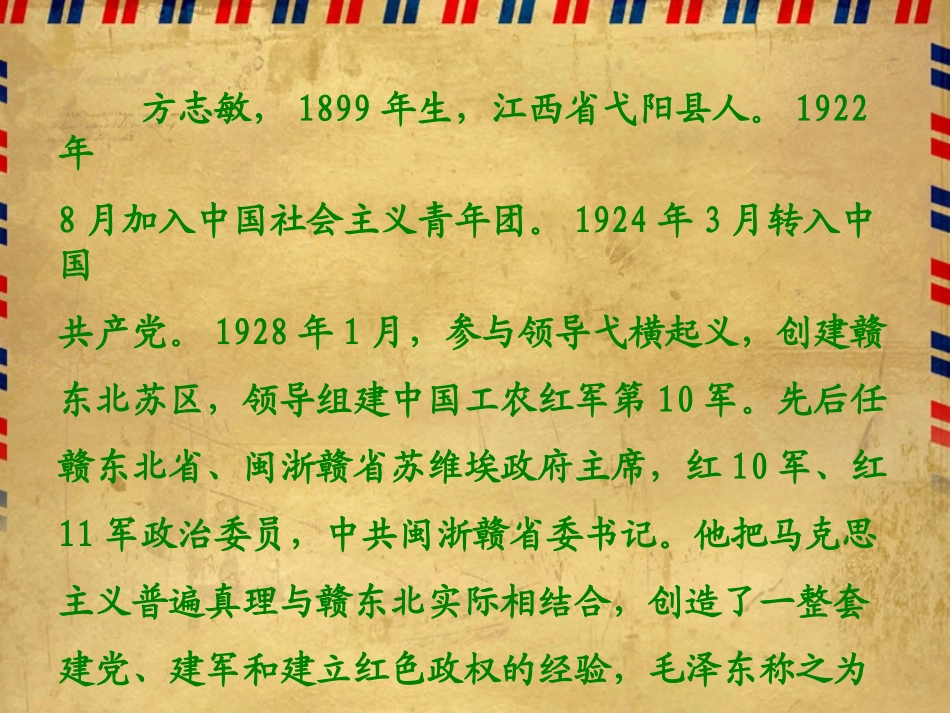 方志敏， 1899 年生，江西省弋阳县人。 1922
年
8 月加入中国社会主义青年团。 1924 年 3 月转入中
国
共产党。 1928 年 1 月，参与领导弋横起义，创建赣
东北苏区，领导组建中国工农红军第 10 军。先后任
赣东北省、闽浙赣省苏维埃政府主席，红 10 军、红
11 军政治委员，中共闽浙赣省委书记。他把马克思
主义普遍真理与赣东北实际相结合，创造了一整套
建党、建军和建立红色政权的经验，毛泽东称之为